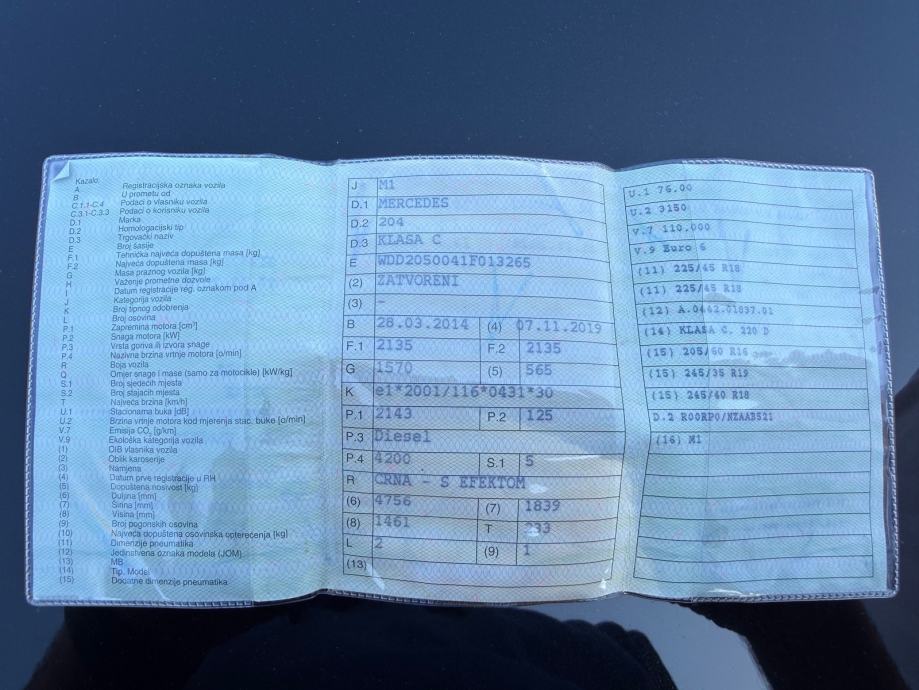 Kazalo:
A Registracijska oznaka vozila
B U prometu od
C.1.1-C.4 Podaci o vlasniku vozila
C.3.1-C.3.3 Podaci o korisniku vozila
D.1 Marka
D.2 Homologacijski tip
D.3 Trgovački naziv
E Broj šasije
F.1 Tehnička najveća dopuštena masa [kg]
F.2 Najveća dopuštena masa [kg]
G Masa praznog vozila [kg]
H Važenje prometne dozvole
I Datum registracije reg. oznakom pod A
J Kategorija vozila
K Broj tipnog odobrenja
L Broj osovina
P.1 Zapremina motora [cm³]
P.2 Snaga motora [kW]
P.3 Vrsta goriva ili izvora snage
P.4 Nazivna brzina vrtnje motora [o/min]
R Boja vozila
Q Omjer snage i mase (samo za motocikle) [kW/kg]
S.1 Broj sjedećih mjesta
S.2 Broj stajaćih mjesta
T Najveća brzina [km/h]
U.1 Stacionarna buka [dB]
U.2 Brzina vrtnje motora kod mjerenja stac. buke [o/min]
V.7 Emisija CO₂ [g/km]
V.9 Ekološka kategorija vozila
(1) OIB vlasnika vozila
(2) Oblik karoserije
(3) Namjena
(4) Datum prve registracije u RH
(5) Dopuštena nosivost [kg]
(6) Duljina [mm]
(7) Širina [mm]
(8) Visina [mm]
(9) Broj pogonskih osovina
(10) Najveća dopuštena osovinska opterećenja [kg]
(11) Dimenzije pneumatika
(12) Jedinstvena oznaka modela (JOM)
(13) MB
(14) Tip, Model
(15) Dodatne dimenzije pneumatika
J M1
D.1 MERCEDES
D.2 204
D.3 KLASA C
E WDD2050041F013265
(2) ZATVORENI
(3) -
B 28.03.2014 (4) 07.11.2019
F.1 2135 F.2 2135
G 1570 (5) 565
K e1*2001/116*0431*30
P.1 2143 P.2 125
P.3 Diesel
P.4 4200 S.1 5
R CRNA - S EFEKTOM
(6) 4756 (7) 1839
(8) 1461 T 233
L 2 (9) 1
(13)
U.1 76.00
U.2 3150
V.7 110,000
V.9 Euro 6
(11) 225/45 R18
(11) 225/45 R18
(12) A.0442.01897.01
(14) KLASA C, 220 D
(15) 205/60 R16
(15) 245/35 R19
(15) 245/40 R18
D.2 R00RP0/NZAAB521
(16) M1